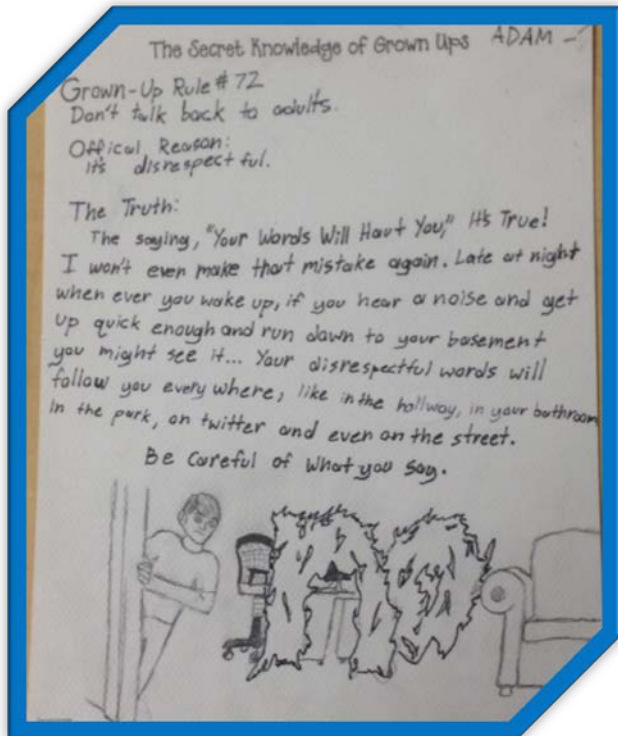 The Secret Knowledge of Grown Ups ADAM
Grown-Up Rule # 72
Don't talk back to adults.
Offical Reason:
It's disrespectful.
The Truth:
The saying, "Your Words Will Haut You," It's True!
I won't even make that mistake again. Late at night
when ever you wake up, if you hear a noise and get
up quick enough and run down to your basement
you might see it... Your disrespectful words will
follow you every where, like in the hallway, in your bathroom
in the park, on twitter and even on the street.
Be careful of what you say.